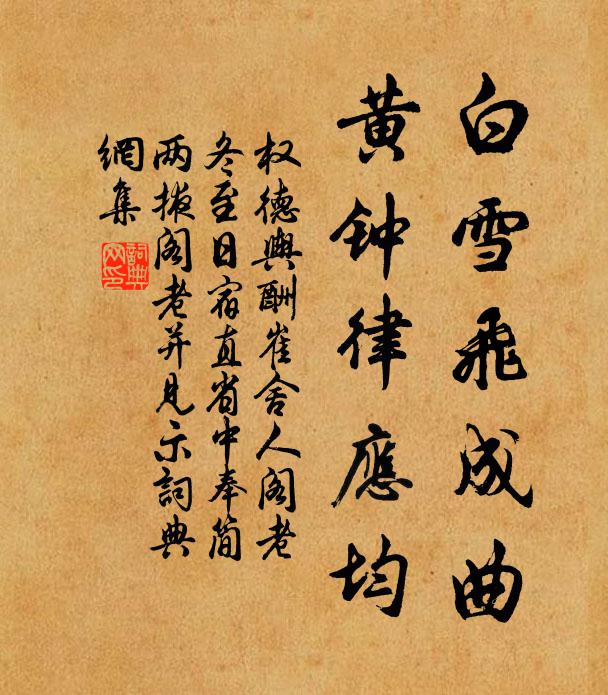 白雪飛成曲
黄钟律應均
权德輿酬崔舍人阁老
冬至日宿直省中奉简
两掖阁老并見示詞典
網集
詞典网印